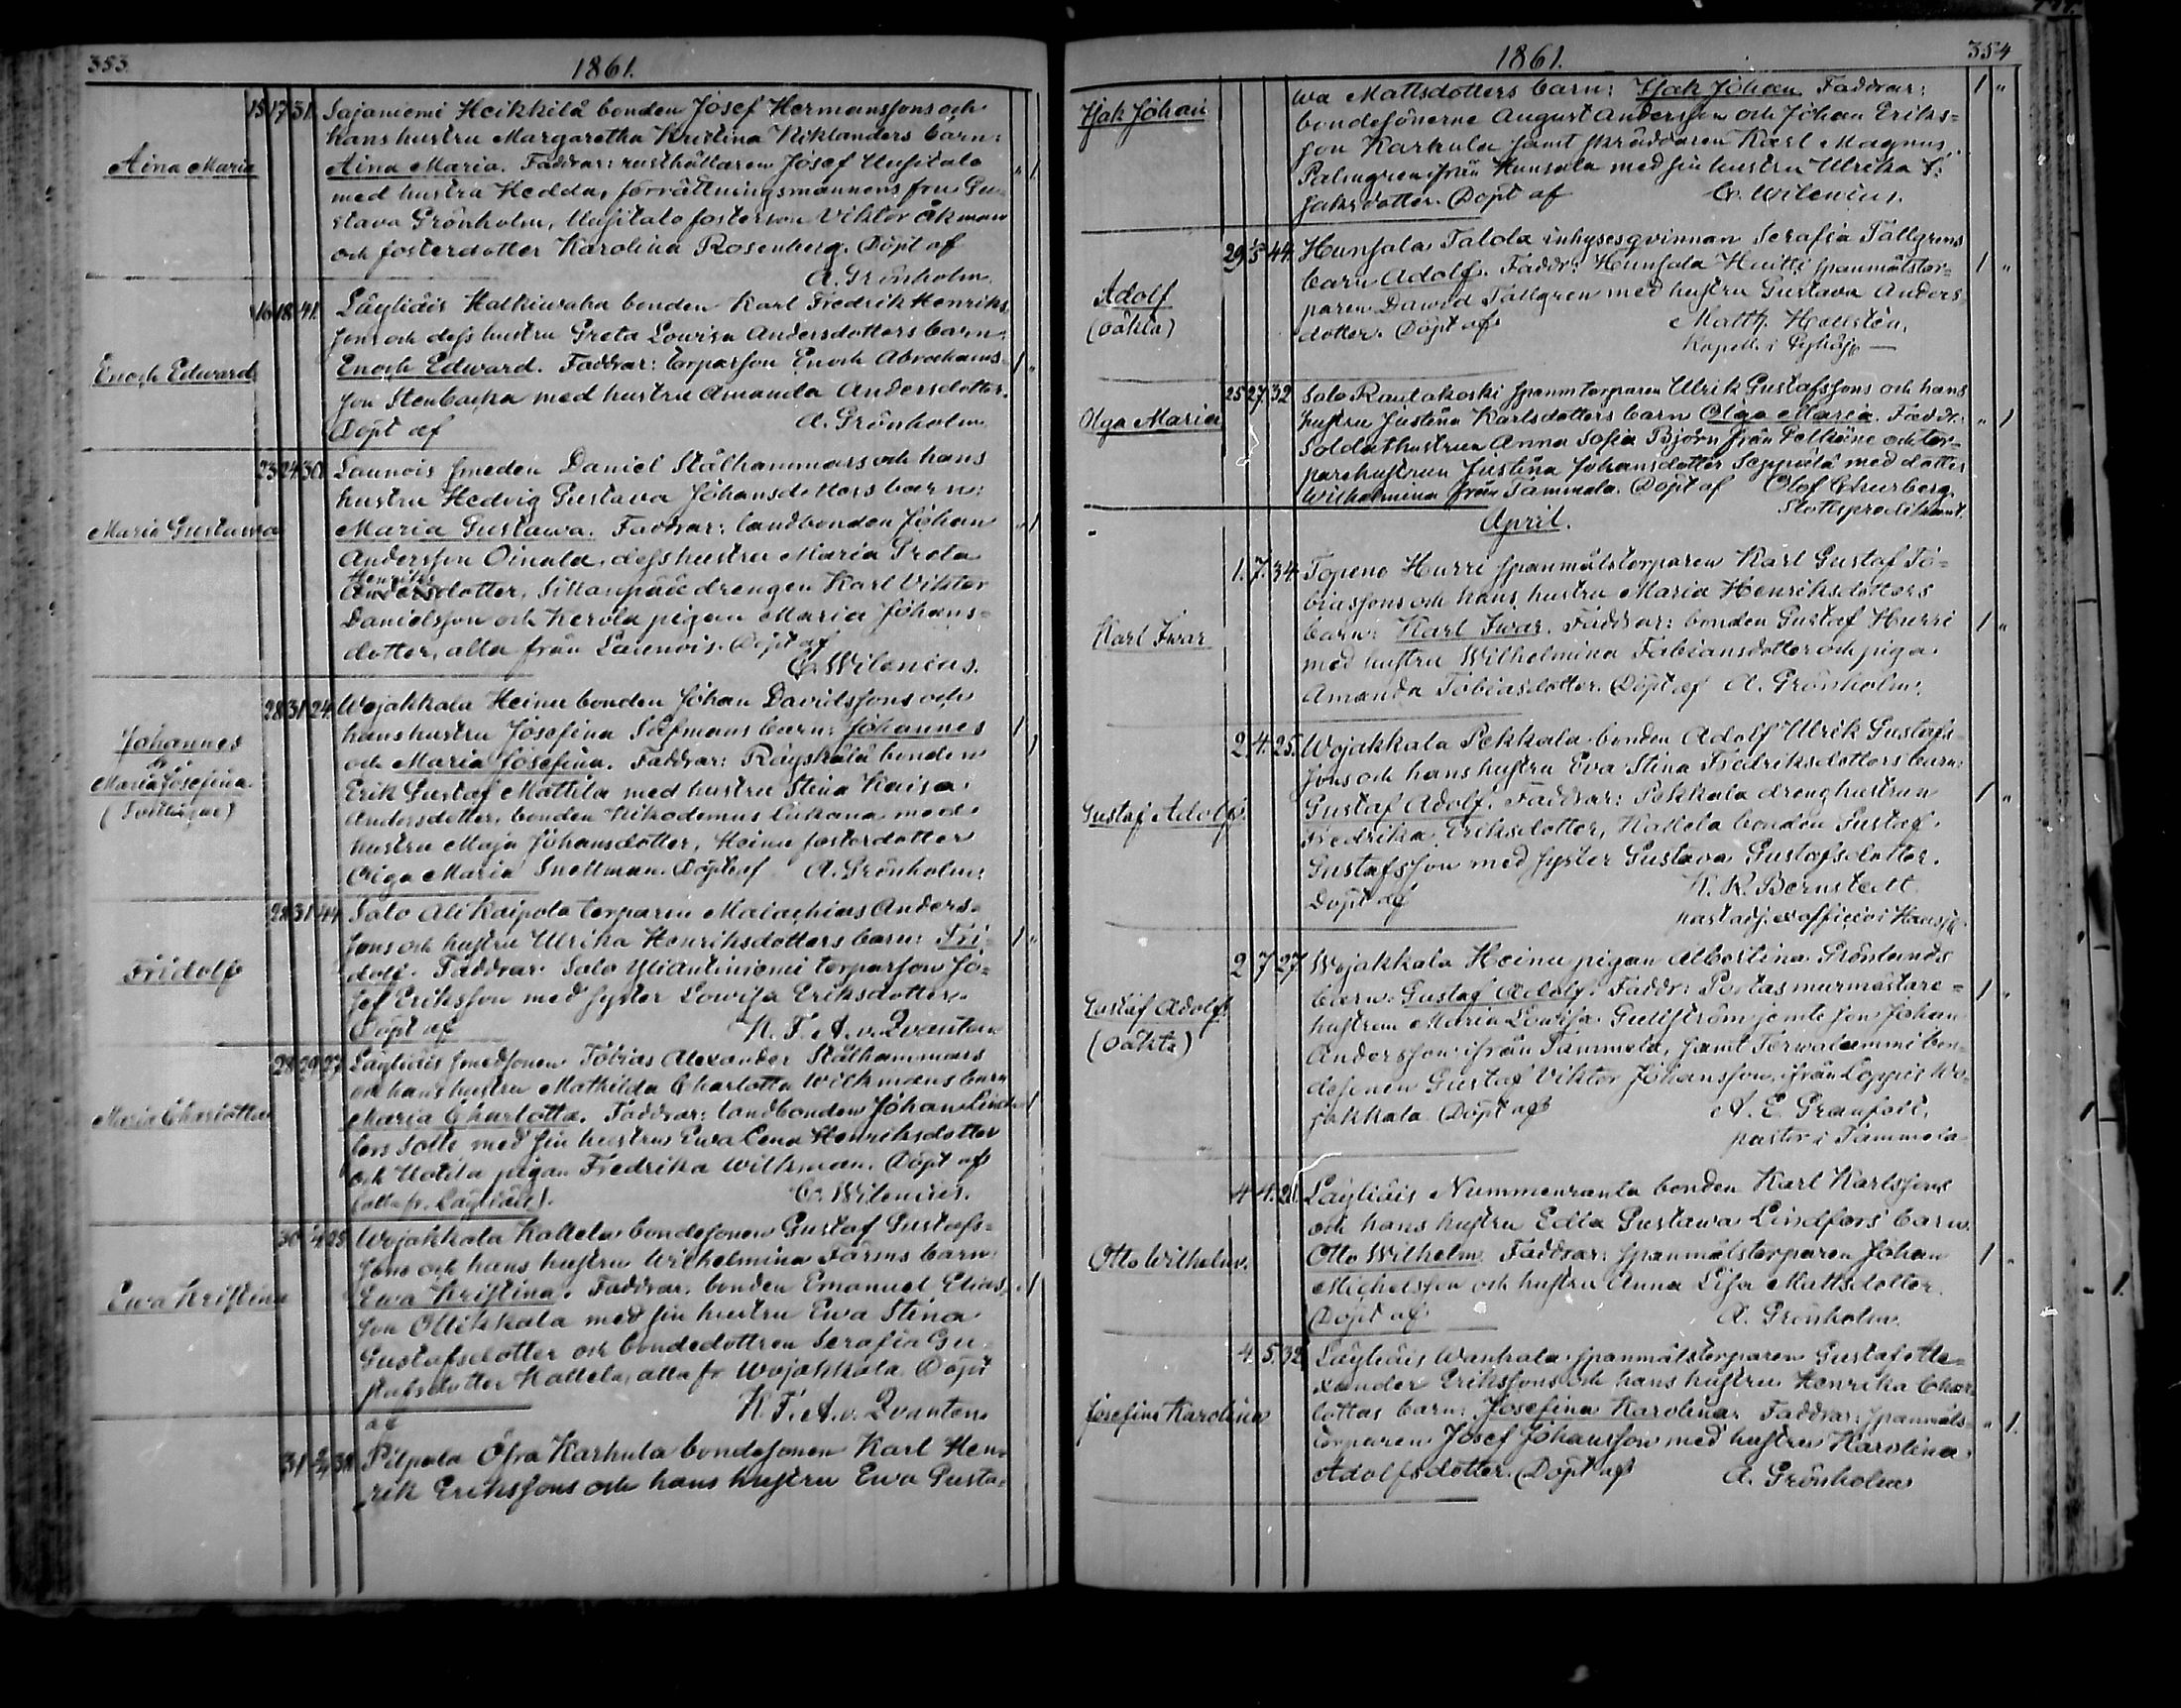 353.
1861.
Aina Maria
15 17 31. Sajaniemi Heikkilä bonden Josef Hermanssons och
hans hustru Margaretha Kristina Niklanders barn:
Aina Maria. Faddrar: rusthållaren Josef Uusitalo " 1
med hustru Hedda, förrättningsmannens fru Gu-
stava Grönholm, Uusitalo fosterson Viktor Åkman
och fosterdotter Karolina Rosenberg. Döpt af
A. Grönholm.
Enoch Edward
16 18 41. Läyliäis Halkiwaha bonden Karl Fredrik Henriks-
sons och dess hustru Greta Lowisa Andersdotters barn:
Enoch Edward. Faddrar: torparson Enoch Abrahams- 1 "
son Stenbacka med hustru Amanda Andersdotter.
Döpt af A. Grönholm
Maria Gustawa
23 24 30. Launois smeden Daniel Stålhammars och hans
hustru Hedvig Gustava Johansdotters barn:
Maria Gustawa. Faddrar: landbonden Johan " 1
Andersson Oinala, dess hustru Maria Greta
Henriks
Andersdotter, Sillanpää drengen Karl Viktor
Danielsson och Kerola pigan Maria Johans-
dotter, alla från Launois. Döpt af
C. Wilenius.
Johannes
&
Maria Josefina
(Tvillingar)
28 31 24. Wojakkala Heinu bonden Johan Davidssons och
hans hustru Josefina Löfmans barn: Johannes 1
och Maria Josefina. Faddrar: Räyskälä bonden 1
Erik Gustaf Mattila med hustru Stina Kaisa
Andersdotter, bonden Nikodemus Liukana med
hustru Maja Johansdotter, Heinu fosterdotter
Olga Maria Snellman. Döpt af A. Grönholm.
Fridolf
28 31 44 Salo Ali Kaipola torparen Malachias Anders-
sons och hustru Ulrika Henriksdotters barn: Fri- 1 "
dolf. Faddrar. Salo Yliantiniemi torparson Jo-
sef Eriksson med syster Lowisa Eriksdotter.
Döpt af K. F. A. v. Qvanten
Maria Charlotta
29 29 27. Läyliäis smedsonen Tobias Alexander Stålhammars
och hans hustru Mathilda Charlotta Wilkmans barn
Maria Charlotta. Faddrar: landbonden Johan Lind- " 1
fors Sotti med sin hustru Ewa Lena Henriksdotter
och Uotila pigan Fredrika Wilkman. Döpt af
(alla fr. Läyliäis). C. Wilenius.
Ewa Kristina
30 1/4 28 Wojakkala Kallela bondesonen Gustaf Gustafs-
sons och hans hustru Wilhelmina Färms barn
Ewa Kristina. Faddrar. bonden Emanuel Elias- " 1
son Ollikkala med sin hustru Ewa Stina
Gustafsdotter och bondedottren Serafia Gu-
stafsdotter Kallela, alla fr Wojakkala. Döpt
af K. F. A. v. Qvanten
31 2/4 31 Pilpala Öfra Karhula bondesonen Karl Hen-
rik Erikssons och hans hustru Ewa Gusta-
1861.
354
Isak Johan
wa Mattsdotters barn: Isak Johan. Faddrar: 1 "
bondesönerne August Andersson och Johan Eriks-
son Karhula samt skräddaren Karl Magnus
Palmgren ifrån Hunsala med sin hustru Ulrika
Jaksdotter. Döpt af C. Wilenius.
Adolf
(oäkta)
29 1/5 44. Hunsala Talola inhysesqvinnan Serafia Tällgrens
barn Adolf. Faddr: Hunsala Huitti spanmålstor- 1 "
paren Dawid Tällgren med hustru Gustava Anders-
dotter. Döpt af Matth. Hollstén,
Kapell. i
Olga Maria
25 27 32 Salo Rautakoski spanmtorparen Ulrik Gustafssons och hans
hustru Justina Karlsdotters barn Olga Maria. Faddr: " 1
Soldathustrun Anna Sofia Björn från Pelkäne och tor-
parehustrun Justina Johansdotter Seppälä med dotter
Wilhelmina från Tammela. Döpt af Olof Churberg
Slottspredikant.
April.
Karl Iwar
1. 7. 34 Topeno Hurri spanmålstorparen Karl Gustaf To-
biassons och hans hustru Maria Henriksdotters
barn: Karl Iwar. Faddrar: bonden Gustaf Hurri 1 "
med hustru Wilhelmina Fabiansdotter och piga
Amanda Tobiasdotter. Döpt af A. Grönholm.
Gustaf Adolf.
2. 4. 25. Wojakkala Pekkala bonden Adolf Ulrik Gustafs-
sons och hans hustru Eva Stina Fredriksdotters barn:
Gustaf Adolf. Faddrar: Pekkala dreng hustrun 1 "
Fredrika Eriksdotter, Kallela bonden Gustaf
Gustafsson med syster Gustava Gustafsdotter.
Döpt af K. R. Bernstedt
past adj. ex officio i Hausjr.
Gustaf Adolf
(oäkta)
2 7 27 Wojakkala Heinu pigan Albertina Grönlunds
barn: Gustaf Adolf. Faddr: Portas murmästare- 1 "
hustrun Maria Lowisa Gullström jemte son Johan
Andersson ifrån Tammela, samt Terwalammi bon-
desonen Gustaf Viktor Johansson, ifrån Loppis Wo-
jakkala. Döpt af A. E. Granfelt.
pastor i Tammela
Otto Wilhelm.
4 4. 21. Läyliäis Nummenranta bonden Karl Karlssons
och hans hustru Edla Gustawa Lindfors barn.
Otto Wilhelm. Faddrar: spanmålstorparen Johan 1 "
Michelsson och hustru Anna Lisa Mattsdotter.
Döpt af A. Grönholm.
Josefina Karolina
4. 5. 32 Läyliäis Wanhala spanmålstorparen Gustaf Ale-
xander Erikssons och hans hustru Henrika Char-
lottas barn: Josefina Karolina. Faddrar: spanmåls- " 1.
torparen Josef Johansson med hustru Karolina
Adolfsdotter. Döpt af A. Grönholm